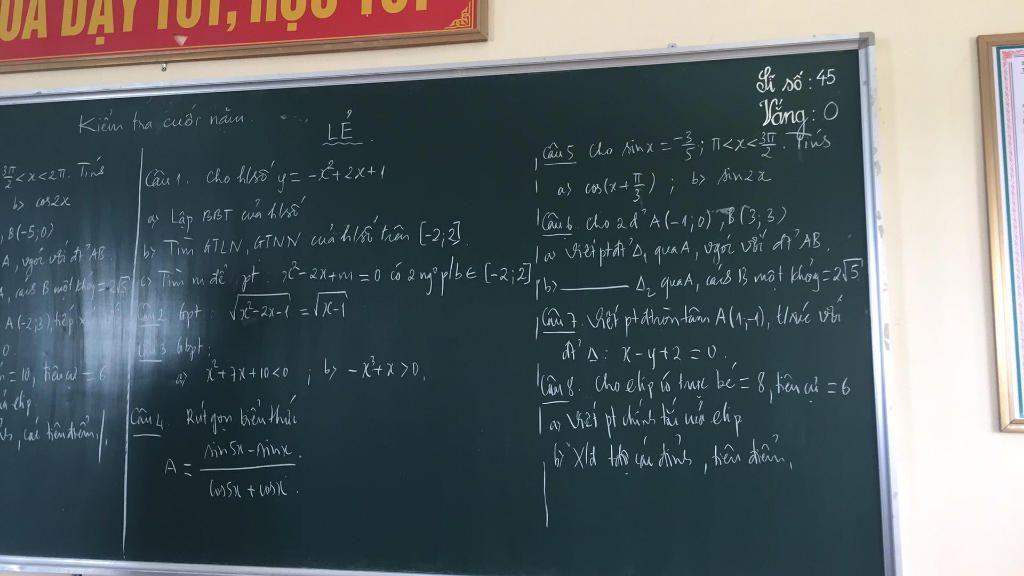 DẠY TỐT, HỌC TỐT
Sĩ số: 45
Vắng: 0
Kiểm tra cuối năm.
3π/2 < x < 2π. Tính
b> cos2x
B(-5;0)
A, vgóc với đt AB.
A, cách B một khg = 2√5
A(-2;3), tiếp x
0.
= 10, tiêu cự = 6
elip
các tiêu điểm,
LẺ
Câu 1. Cho h/số y = -x²+2x+1
a> Lập BBT của h/số
b> Tìm GTLN, GTNN của h/số trên [-2;2].
c> Tìm m để pt: x²-2x+m=0 có 2 ngº p/b ∈ [-2;2]
Câu 2. Gpt: √(x²-2x-1) = √(x-1)
Câu 3 Gbpt:
a> x²+7x+10<0 ; b> -x³+x>0.
Câu 4. Rút gọn biểu thức
A = (sin5x - sinx)/(cos5x + cosx).
Câu 5 Cho sinx = -3/5; π<x<3π/2. Tính
a> cos(x+π/3); b> sin2x
Câu 6. Cho 2 đ' A(-1;0), B(3;3)
a> Viết ptđt Δ₁ qua A, vgóc với đt AB.
b> ——— Δ₂ qua A, cách B một khg = 2√5
Câu 7. Viết pt đtròn tâm A(1;-1), t/xúc với
đt Δ: x-y+2=0.
Câu 8. Cho elip có trục bé = 8, tiêu cự = 6
a> Viết pt chính tắc của elip
b> Xđ tđộ các đỉnh, tiêu điểm.